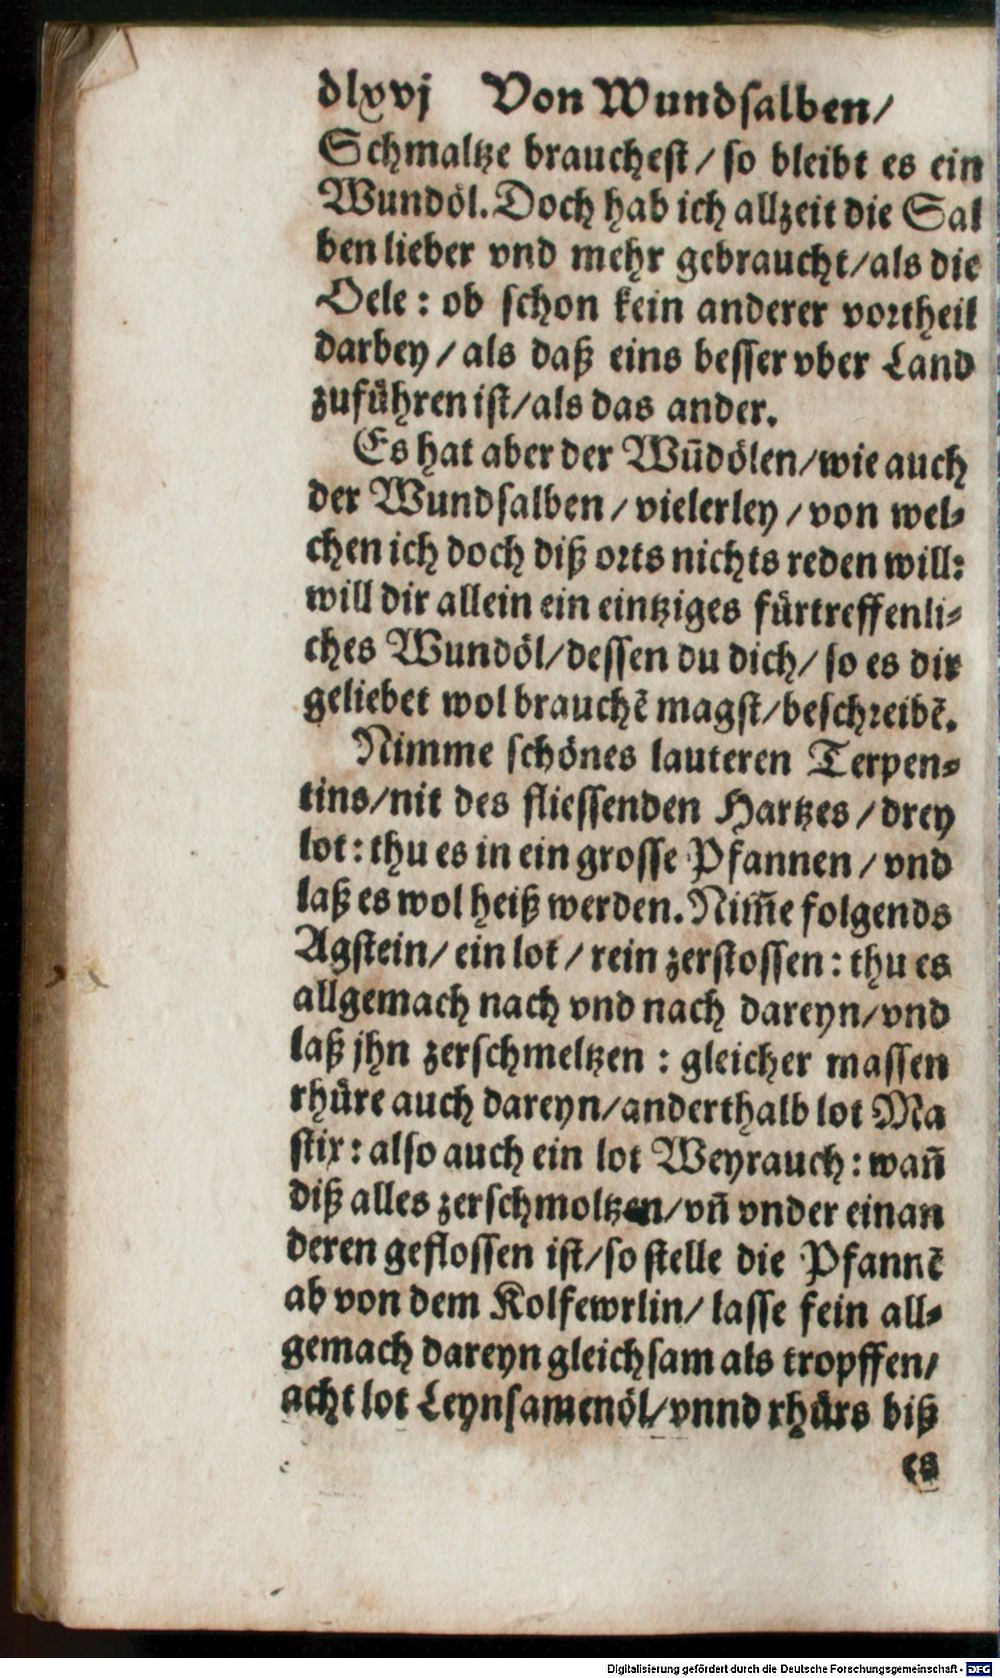 dlxvj Von Wundsalben/
Schmaltze brauchest/ so bleibt es ein
Wundöl. Doch hab ich allzeit die Sal
ben lieber vnd mehr gebraucht/als die
Oele: ob schon kein anderer vortheil
darbey/ als daß eins besser vber Land
zuführen ist/als das ander.
Es hat aber der Wūdölen/wie auch
der Wundsalben/ vielerley/ von wel-
chen ich doch diß orts nichts reden will:
will dir allein ein eintziges fürtreffenli-
ches Wundöl/dessen du dich/ so es dir
geliebet wol brauchē magst/beschreibē.
Nimme schönes lauteren Terpen-
tins/nit des fliessenden Hartzes/ drey
lot: thu es in ein grosse Pfannen/ vnd
laß es wol heiß werden. Nim̄e folgends
Agstein/ ein lot/ rein zerstossen: thu es
allgemach nach vnd nach dareyn/vnd
laß jhn zerschmeltzen: gleicher massen
rhüre auch dareyn/anderthalb lot Ma
stix: also auch ein lot Weyrauch: wañ
diß alles zerschmoltzen/vñ vnder einan
deren geflossen ist/so stelle die Pfannē
ab von dem Kolfewrlin/ lasse fein all-
gemach dareyn gleichsam als tropffen/
acht lot Leynsamenöl/vnnd rhürs biß
es
Digitalisierung gefördert durch die Deutsche Forschungsgemeinschaft - DFG